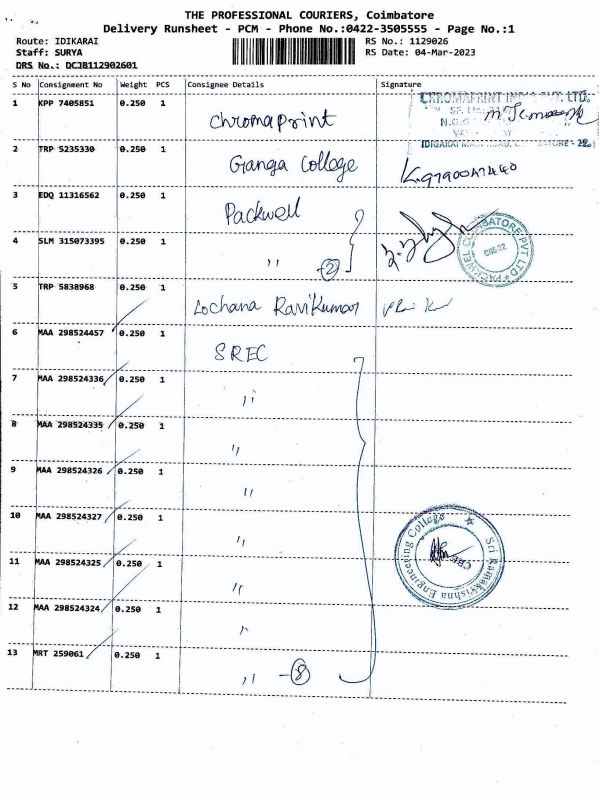 THE PROFESSIONAL COURIERS, Coimbatore
Delivery Runsheet - PCM - Phone No.:0422-3505555 - Page No.:1
Route: IDIKARAI
Staff: SURYA
DRS No.: DCJB112902601
RS No.: 1129026
RS Date: 04-Mar-2023
S No Consignment No Weight PCS Consignee Details Signature
1 KPP 7405851 0.250 1 Chromaprint
CHROMAPRINT PVT. LTD.
2 TRP 5235330 0.250 1 Ganga College
3 EDQ 11316562 0.250 1 Packwell
4 SLM 315073395 0.250 1 " (2)
PACKWEL COIMBATORE PVT LTD
CBE-22
5 TRP 5838968 0.250 1 Lochana Ravikumar
6 MAA 298524457 0.250 1 SREC
7 MAA 298524336 0.250 1 "
8 MAA 298524335 0.250 1 "
9 MAA 298524326 0.250 1 "
10 MAA 298524327 0.250 1 "
11 MAA 298524325 0.250 1 "
12 MAA 298524324 0.250 1 "
13 MRT 259061 0.250 1 " - (8)
Sri Ramakrishna Engineering College